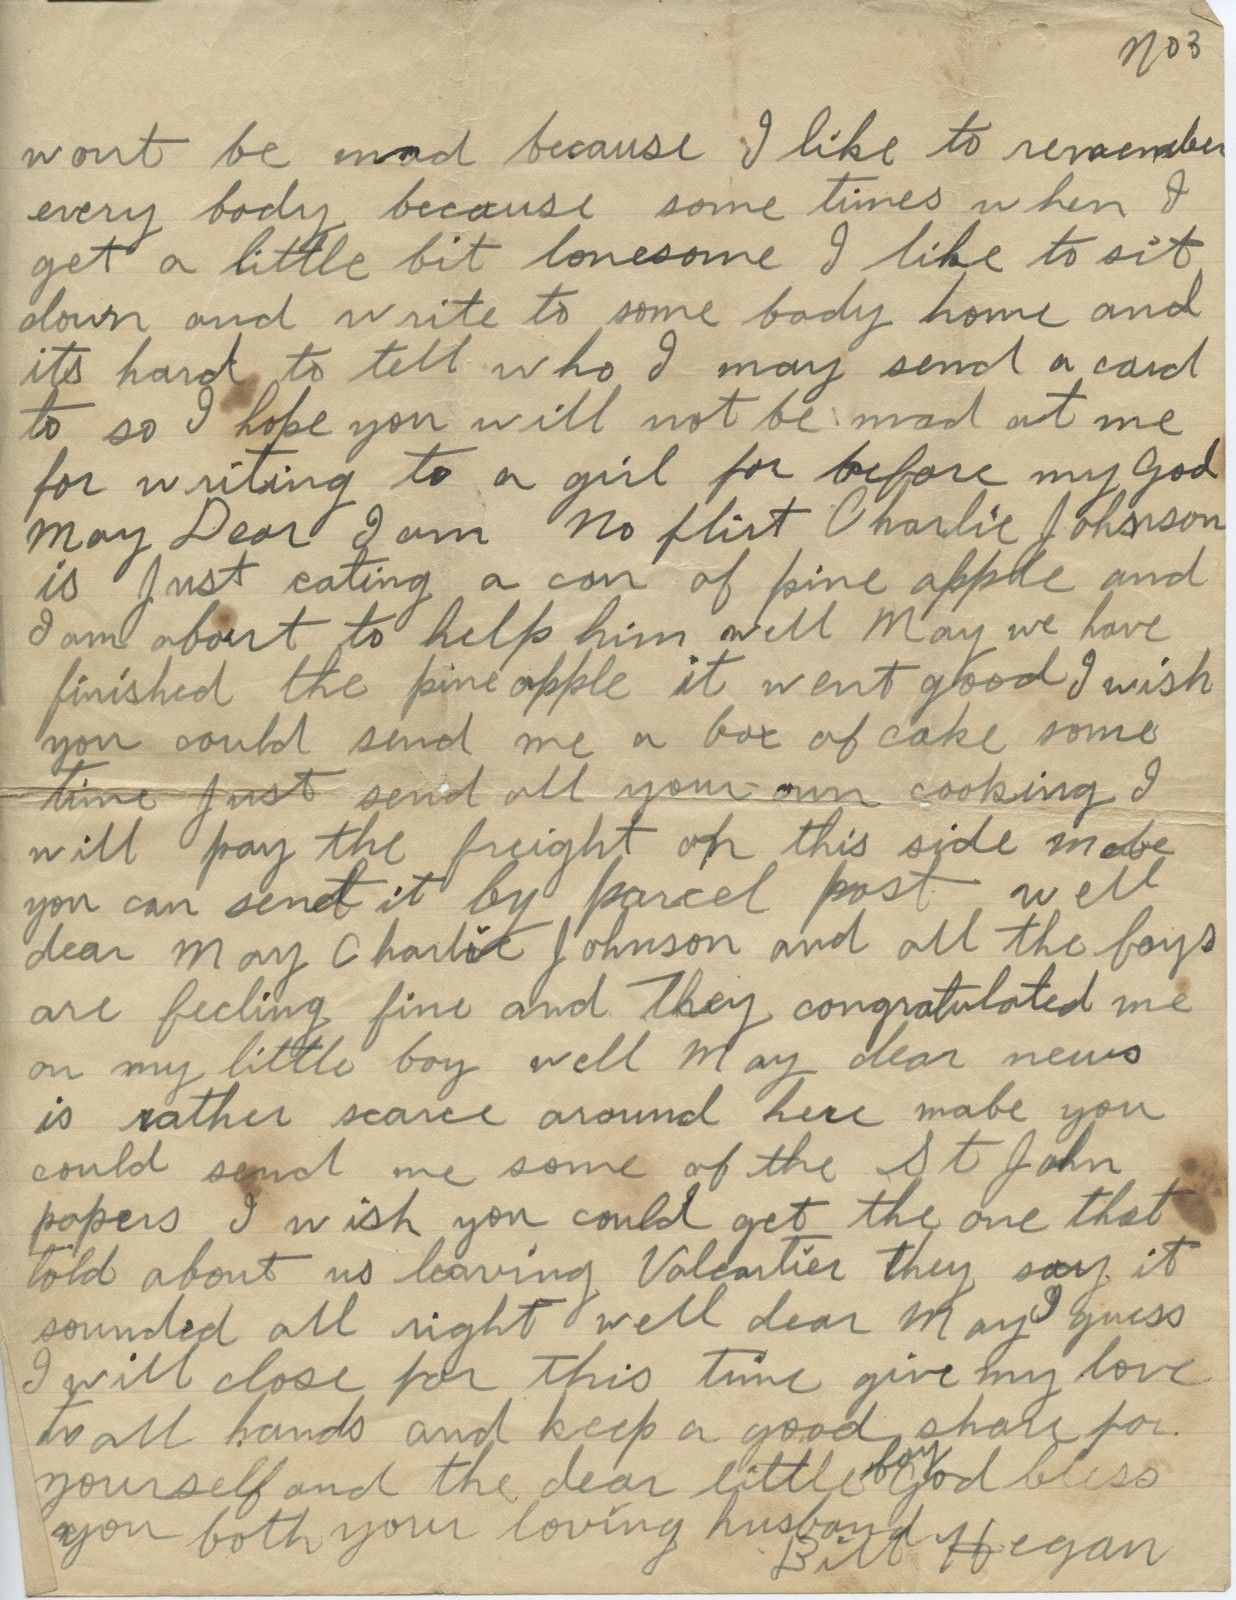 No 3
wont be mad because I like to remember
every body because some times when I
get a little bit lonesome I like to sit
down and write to some body home and
its hard to tell who I may send a card
to so I hope you will not be mad at me
for writing to a girl for before my God
May Dear I am No flirt Charlie Johnson
is Just eating a can of pine apple and
I am about to help him well May we have
finished the pineapple it went good I wish
you could send me a box of cake some
time Just send all your own cooking I
will pay the freight on this side mabe
you can send it by parcel post well
dear May Charlie Johnson and all the boys
are feeling fine and They congratulated me
on my little boy well May dear news
is rather scarce around here mabe you
could send me some of the St John
papers I wish you could get the one that
told about us leaving Valcartier they say it
sounded all right well dear May I guess
I will close for this time give my love
to all hands and keep a good share for
yourself and the dear little boy God bless
you both your loving husband
Bill Hegan